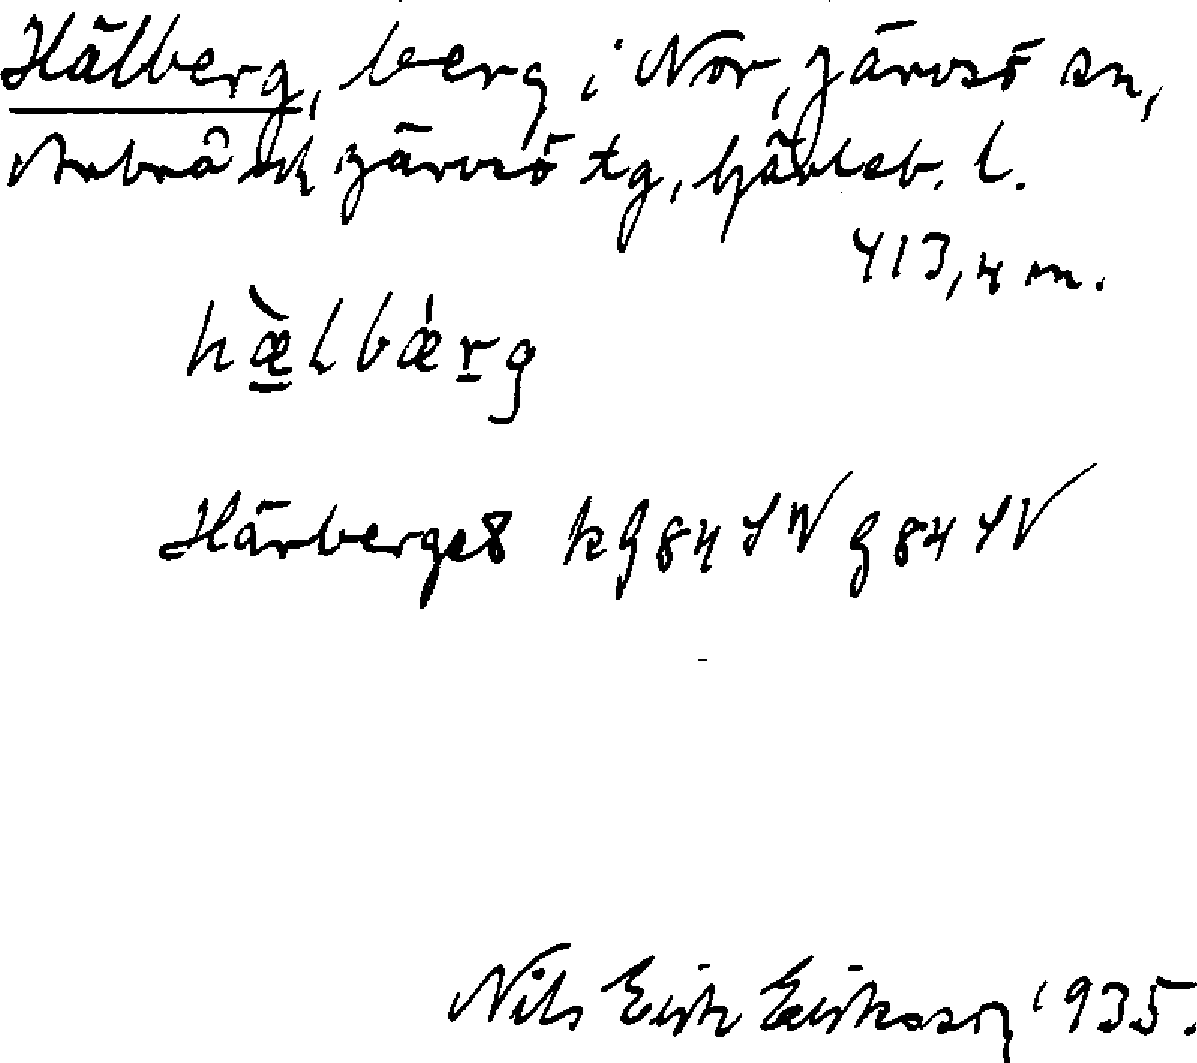 Hälberg, berg i Nor, Järvsö sn,
Arbrå ok Järvsö tg, Gävleb. l.
413,4 m.
hæ̀lbǽrg
Härberget kg 84 SV g 84 SV
Nils Erik Eriksson 1935.